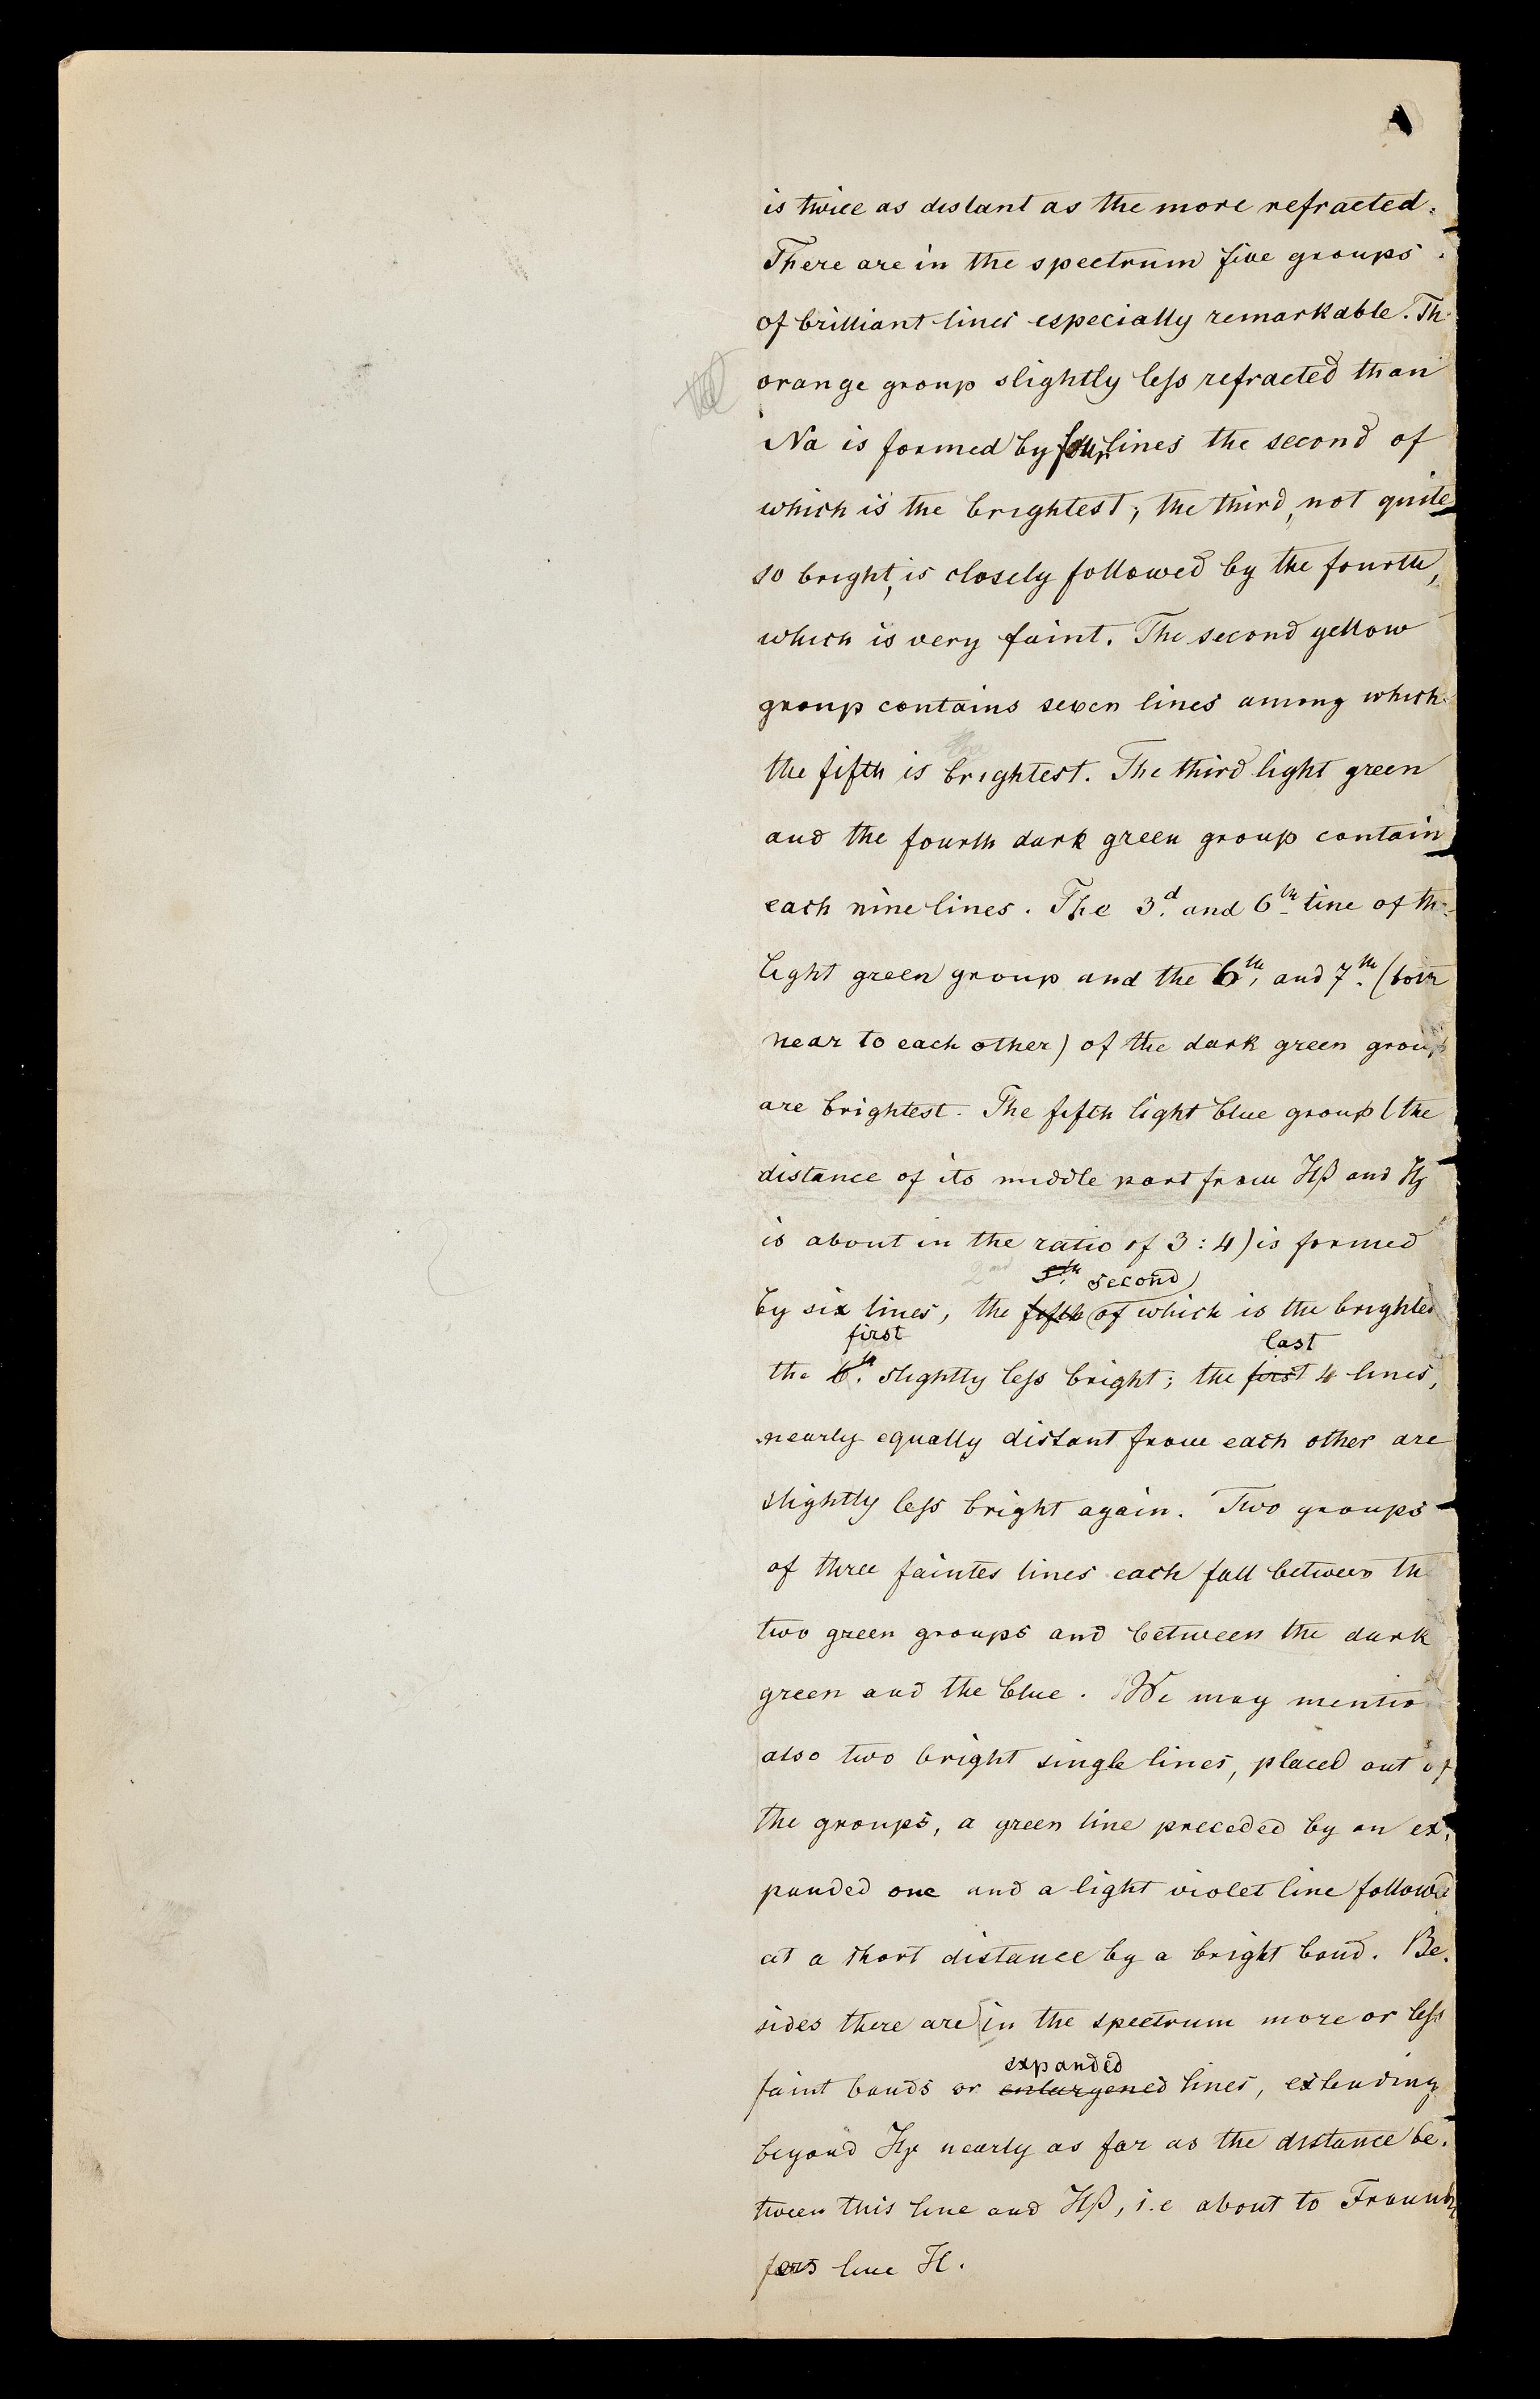 is twice as distant as the more refracted.
There are in the spectrum five groups
of brilliant lines especially remarkable. Th
the
orange group slightly less refracted than
Na is formed by four lines the second of
which is the brightest; the third, not quite
so bright, is closely followed by the fourth,
which is very faint. The second yellow
group contains seven lines among which
the
the fifth is brightest. The third light green
and the fourth dark green group contain
each nine lines. The 3d. and 6th line of the
light green group and the 6th, and 7th. (both
near to each other) of the dark green group
are brightest. The fifth light blue group (the
distance of its middle part from Hβ and Hγ
is about in the ratio of 3 : 4) is formed
2nd 5th. second
by six lines, the fifth of which is the brightes
first last
the 6th. slightly less bright; the first 4 lines,
nearly equally distant from each other are
slightly less bright again. Two groups
of three faintes lines each fall between th
two green groups and between the dark
green and the blue. We may mentio
also two bright single lines, placed out of
the groups, a green line preceded by an ex.
panded one and a light violet line followed
at a short distance by a bright band. Be.
sides there are in the spectrum more or less
expanded
faint bands or enlargened lines, extending
beyond Hγ nearly as far as the distance be.
tween this line and Hβ, i.e about to Fraunh
fers line H.